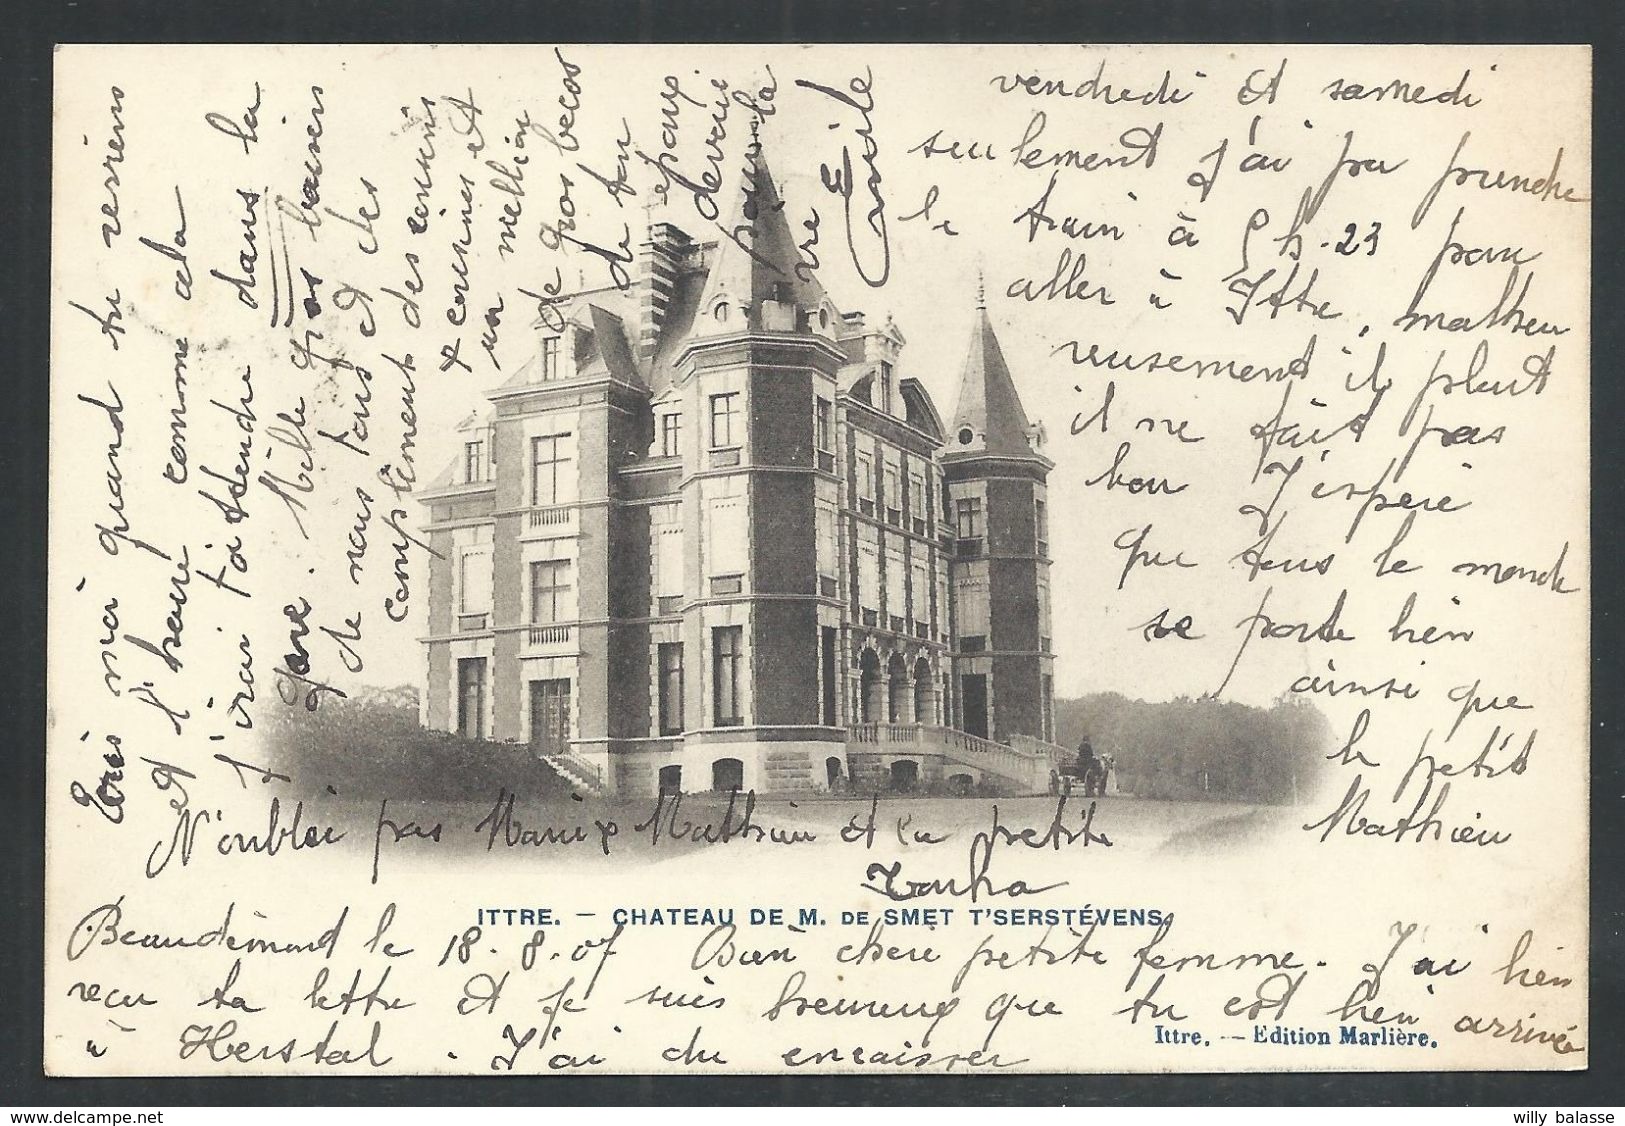 Beaudémond le 18-8.07 Bien chère petite femme. J'ai bien
recu ta lettre et je suis heureux que tu est bien arrivée
à Herstal. J'ai du encaisser
vendredi et samedi
seulement j'ai pu prendre
le train à 5h.23 pour
aller à Ittre, malheu
reusement il pleut
il ne fait pas
bon J'espère
que tous le monde
se porte bien
ainsi que
le petit
Mathieu
N'oublei pas Marie Mathieu et la petite
Ecris moi quand tu reviens
et l'heure comme cela
j'irai t'attendre dans la
gare. Mille gros baisers
de nous tous et des
compliments des cousins
& cousines et
un million
de gros becos
de ton
epoux
devoué
pour la
vie
Emile
ITTRE. — CHATEAU DE M. DE SMET T'SERSTÉVENS.
Ittre. — Edition Marlière.
willy balasse